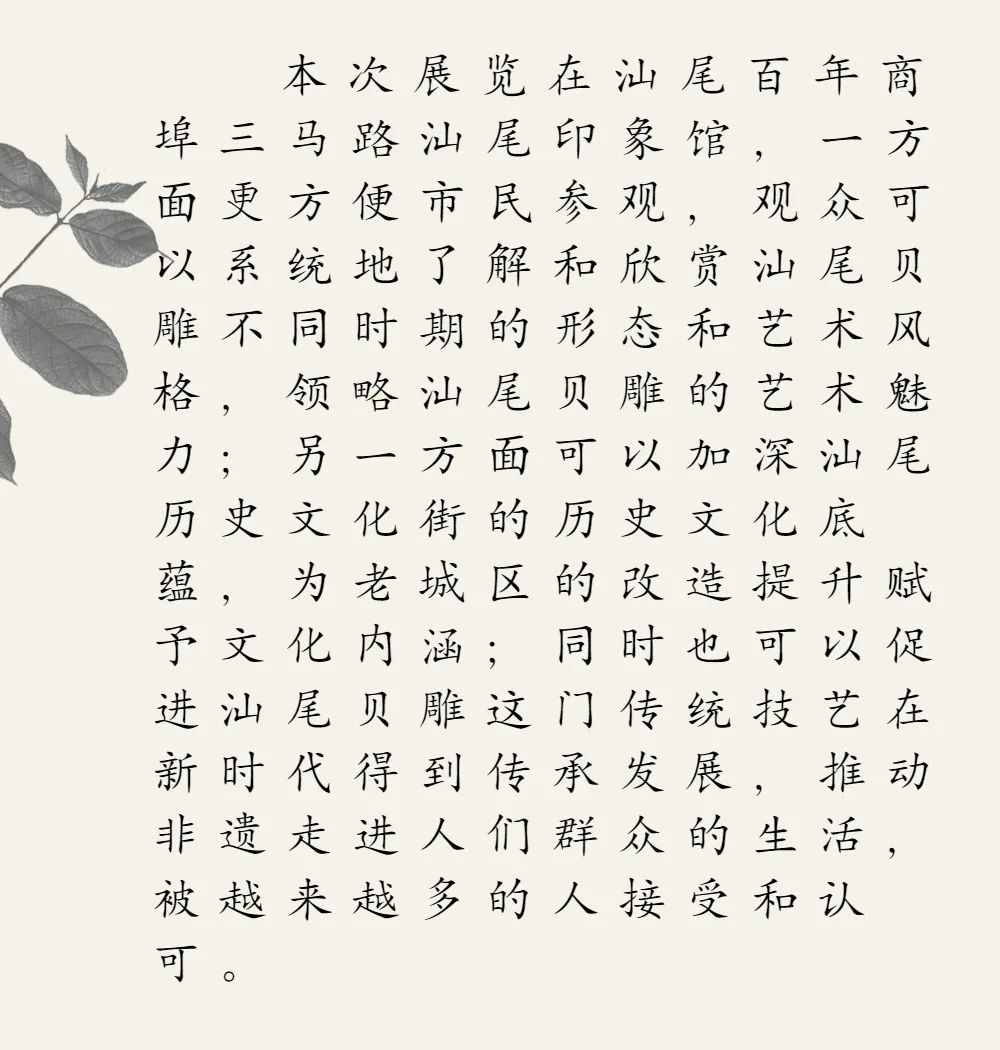 本次展览在汕尾百年商
埠三马路汕尾印象馆，一方
面更方便市民参观，观众可
以系统地了解和欣赏汕尾贝
雕不同时期的形态和艺术风
格，领略汕尾贝雕的艺术魅
力；另一方面可以加深汕尾
历史文化街的历史文化底
蕴，为老城区的改造提升赋
予文化内涵；同时也可以促
进汕尾贝雕这门传统技艺在
新时代得到传承发展，推动
非遗走进人们群众的生活，
被越来越多的人接受和认
可。